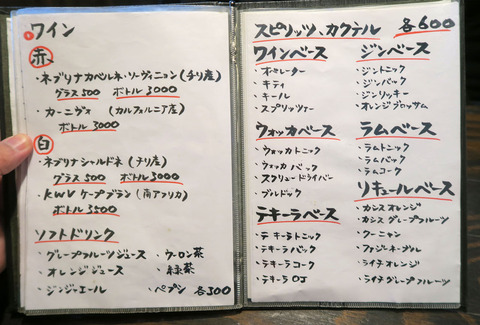 ワイン
赤
・ネブリナカベルネ・ソーヴィニョン(チリ産)
グラス500 ボトル3000
・カーニヴォ (カルフォルニア産)
ボトル3000
白
・ネブリナシャルドネ(チリ産)
グラス500 ボトル3000
・KWV ケープブラン(南アフリカ)
ボトル3500
ソフトドリンク
・グレープフルーツジュース ・ウーロン茶
・オレンジジュース ・緑茶
・ジンジャエール ・ペプシ 各300
スピリッツ、カクテル 各600
ワインベース
・オペレーター
・キティ
・キール
・スプリッツァー
ウォッカベース
・ウォッカトニック
・ウォッカバック
・スクリュードライバー
・ブルドック
テキーラベース
・テキーラトニック
・テキーラバック
・テキーラコーク
・テキーラOJ
ジンベース
・ジントニック
・ジンバック
・ジンリッキー
・オレンジブロッサム
ラムベース
・ラムトニック
・ラムバック
・ラムコーク
リキュールベース
・カシスオレンジ
・カシスグレープフルーツ
・クーニャン
・ファジーネーブル
・ライチオレンジ
・ライチグレープフルーツ